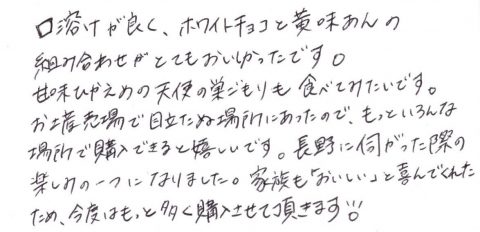 口溶けが良く、ホワイトチョコと黄味あんの
組み合わせがとてもおいしかったです。
甘味ひかえめの天使の巣ごもりも食べてみたいです。
お土産売場で目立たぬ場所にあったので、もっといろんな
場所で購入できると嬉しいです。長野に伺がった際の
楽しみの一つになりました。家族も「おいしい」と喜んでくれた
ため、今度はもっと多く購入させて頂きます!!